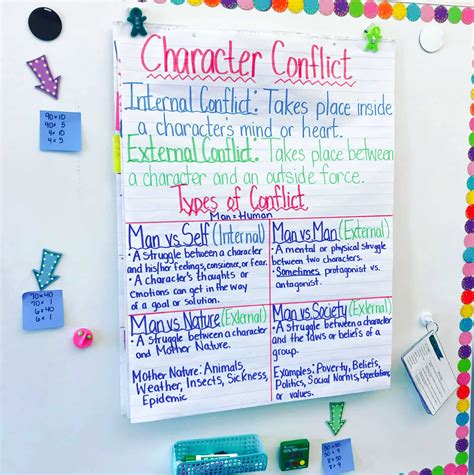 Character Conflict
Internal Conflict: Takes place inside
a character's mind or heart.
External Conflict: Takes place between
a character and an outside force.
Types of Conflict
Man = Human
Man vs Self (Internal)
• A struggle between a character
and his/her feelings, conscience, or fear.
• A character's thoughts or
emotions can get in the way
of a goal or solution.
Man vs Man (External)
• A mental or physical struggle
between two characters.
• Sometimes protagonist vs.
antagonist.
Man vs Nature (External)
• A struggle between a character
and Mother Nature.
Mother Nature: Animals,
Weather, Insects, Sickness,
Epidemic
Man vs Society (External)
• A struggle between a character
and the laws or beliefs of a
group.
Examples: Poverty, Beliefs,
Politics, Social Norms, Expectations,
or values.
90 × 10
90 × 5
4 × 10
4 × 5
70 × 40
70 × 1
6 × 40
6 × 1